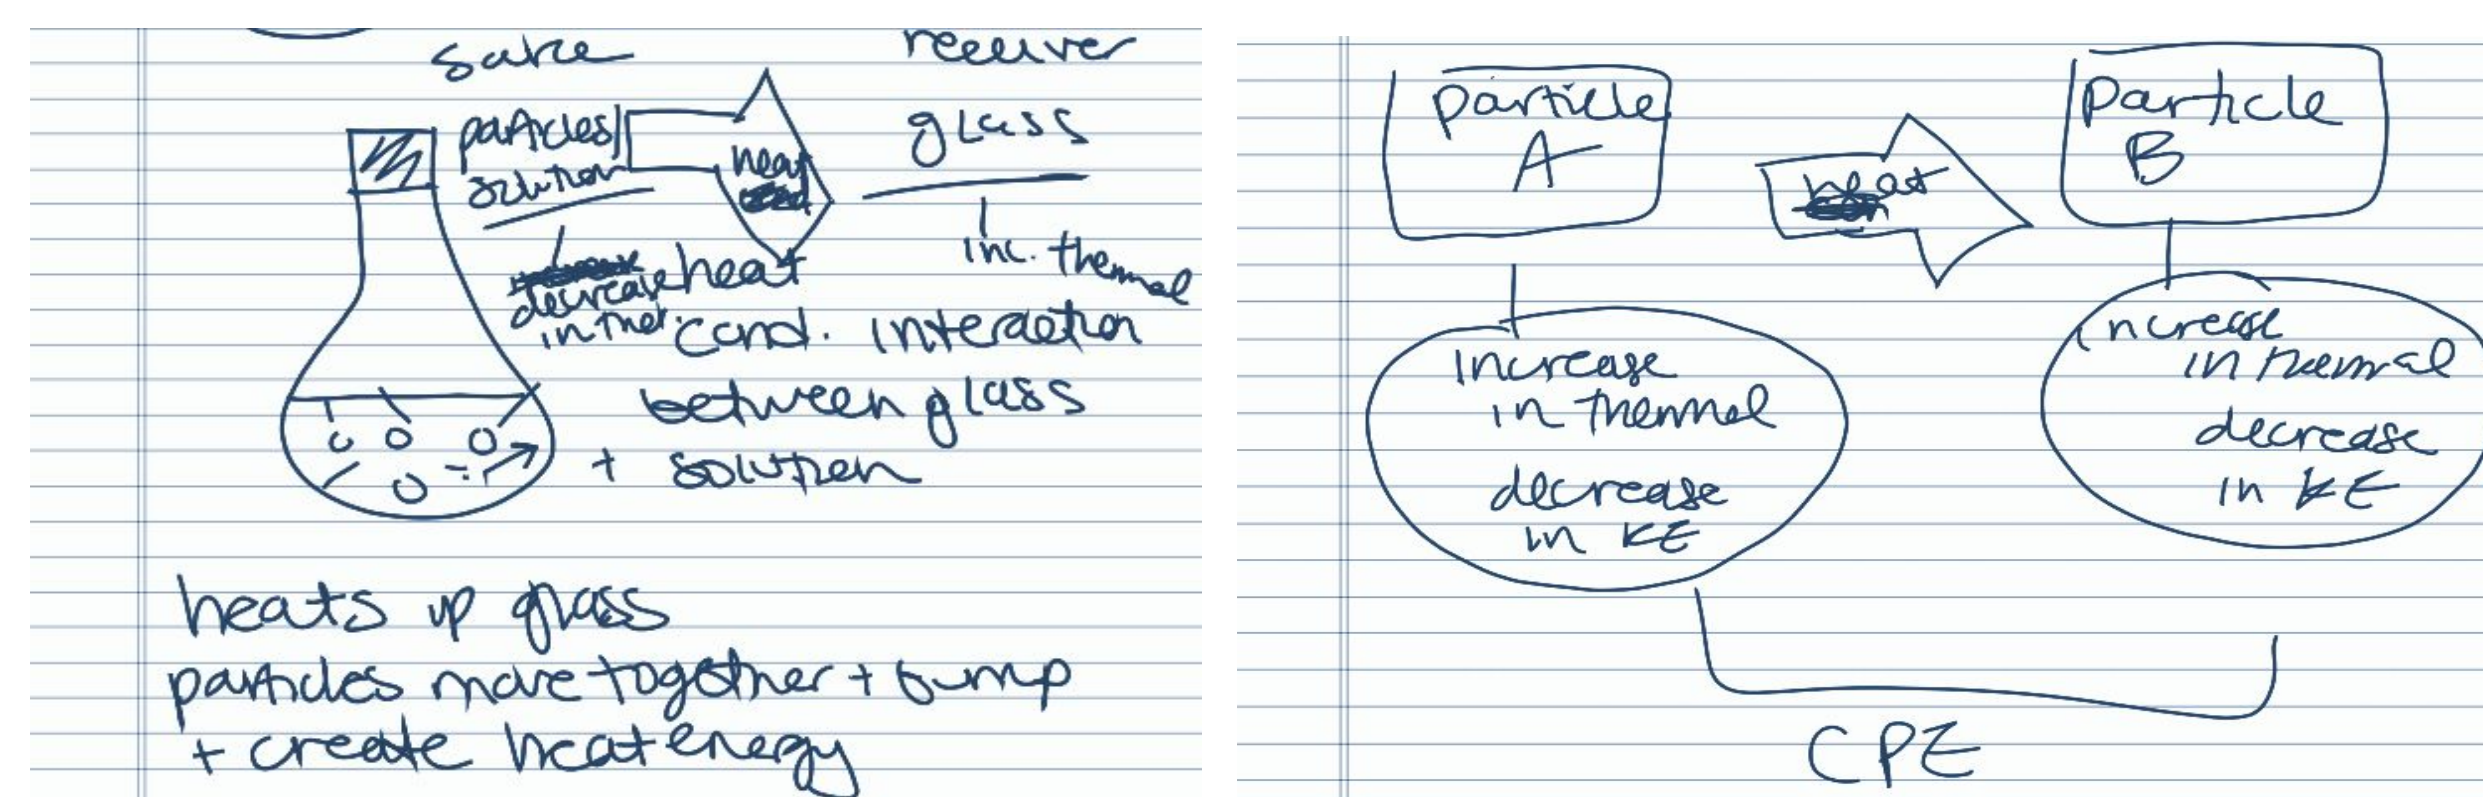 source
receiver
particles/
solution
heat
glass
decrease
in ther.
inc. thermal
heat
cond. interaction
between glass
+ solution
heats up glass
particles move together + bump
+ create heat energy
particle
A
heat
Particle
B
increase
in thermal
decrease
in KE
increase
in thermal
decrease
in KE
CPE